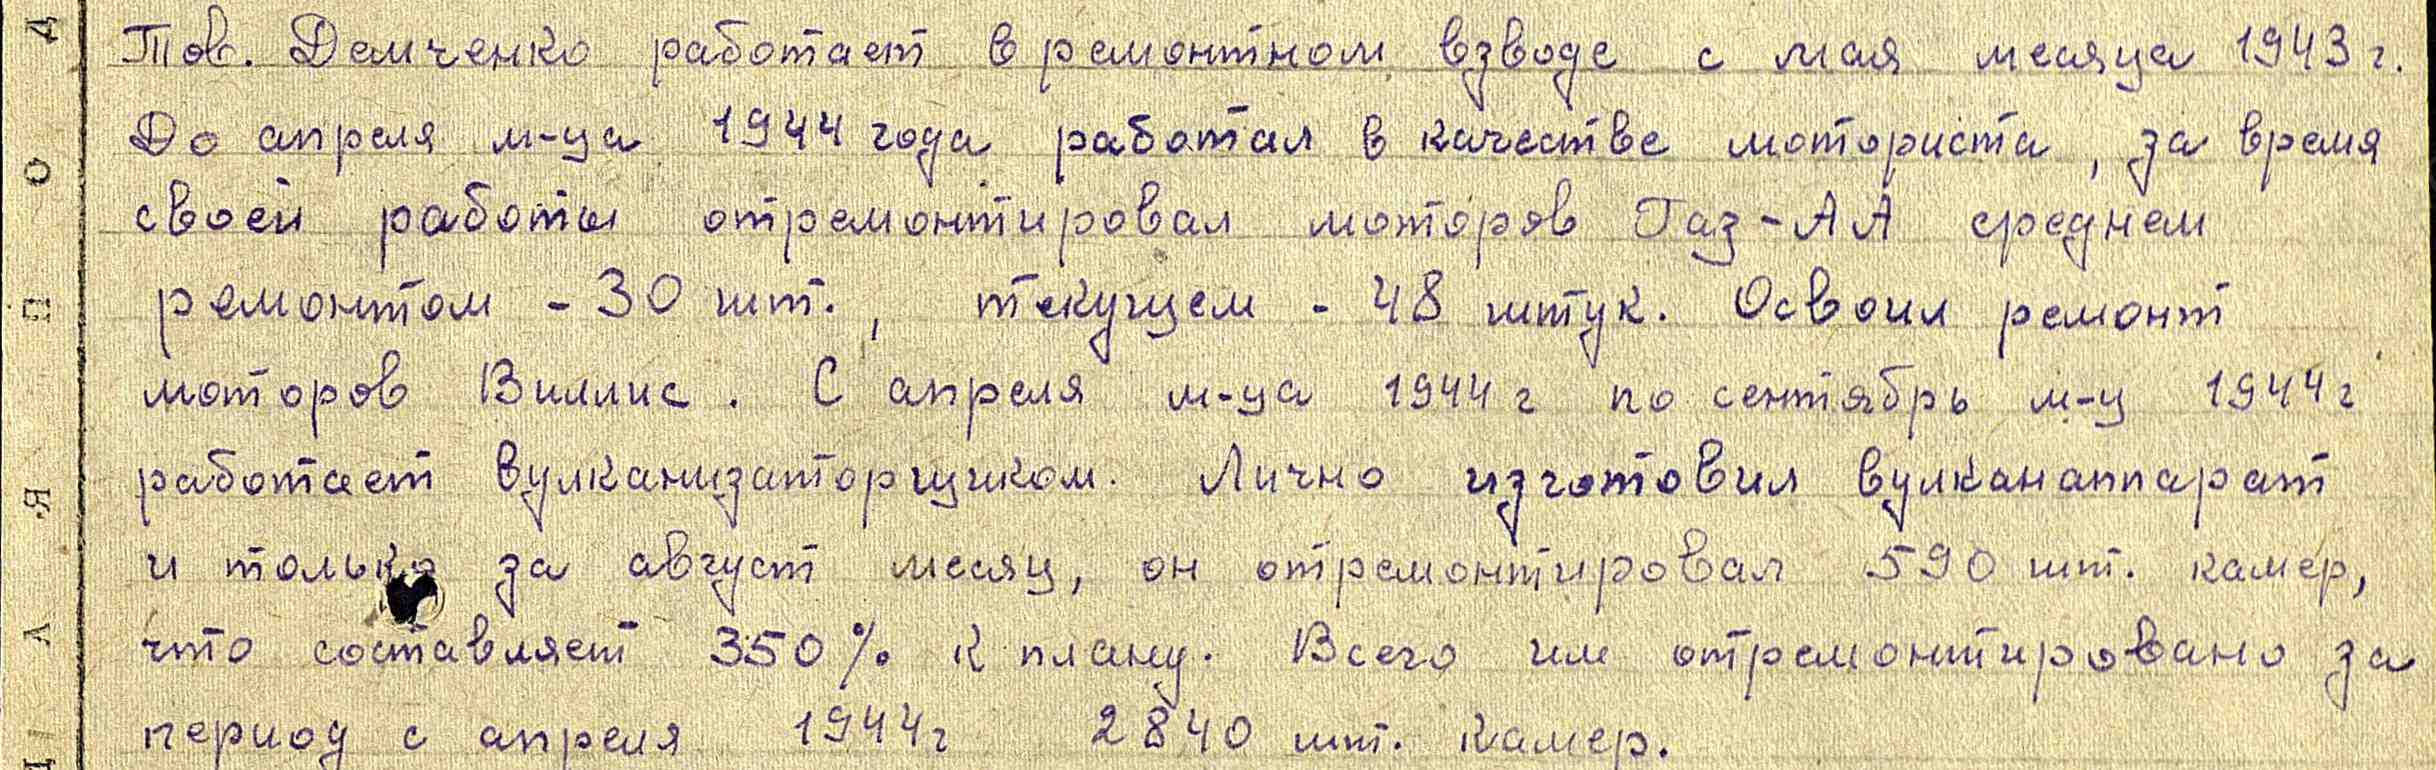 Тов. Демченко работает в ремонтном взводе с мая месяца 1943 г.
До апреля м-ца 1944 года работал в качестве моториста, за время
своей работы отремонтировал моторов Газ-АА среднем
ремонтом - 30 шт., текущем - 48 штук. Освоил ремонт
моторов Виллис. С апреля м-ца 1944 г по сентябрь м-ц 1944 г
работает вулканизаторщиком. Лично изготовил вулканаппарат
и только за август месяц, он отремонтировал 590 шт. камер,
что составляет 350% к плану. Всего им отремонтировано за
период с апреля 1944 г 2840 шт. камер.